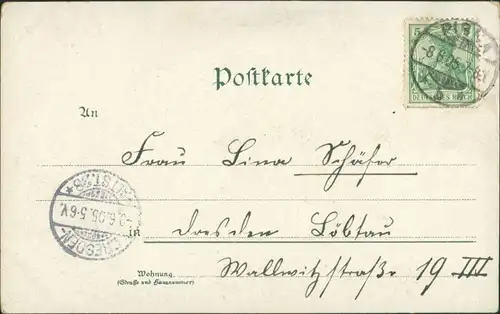 PIRNA
5
-8.6.05
DEUTSCHES REICH
Postkarte
An
Frau Lina Schäfer
DRESDEN-ALTST. 28
-9.6.05. 5-6V.
in Dresden Löbtau
Wohnung
(Straße und Hausnummer)
Wallwitzstraße 19 III